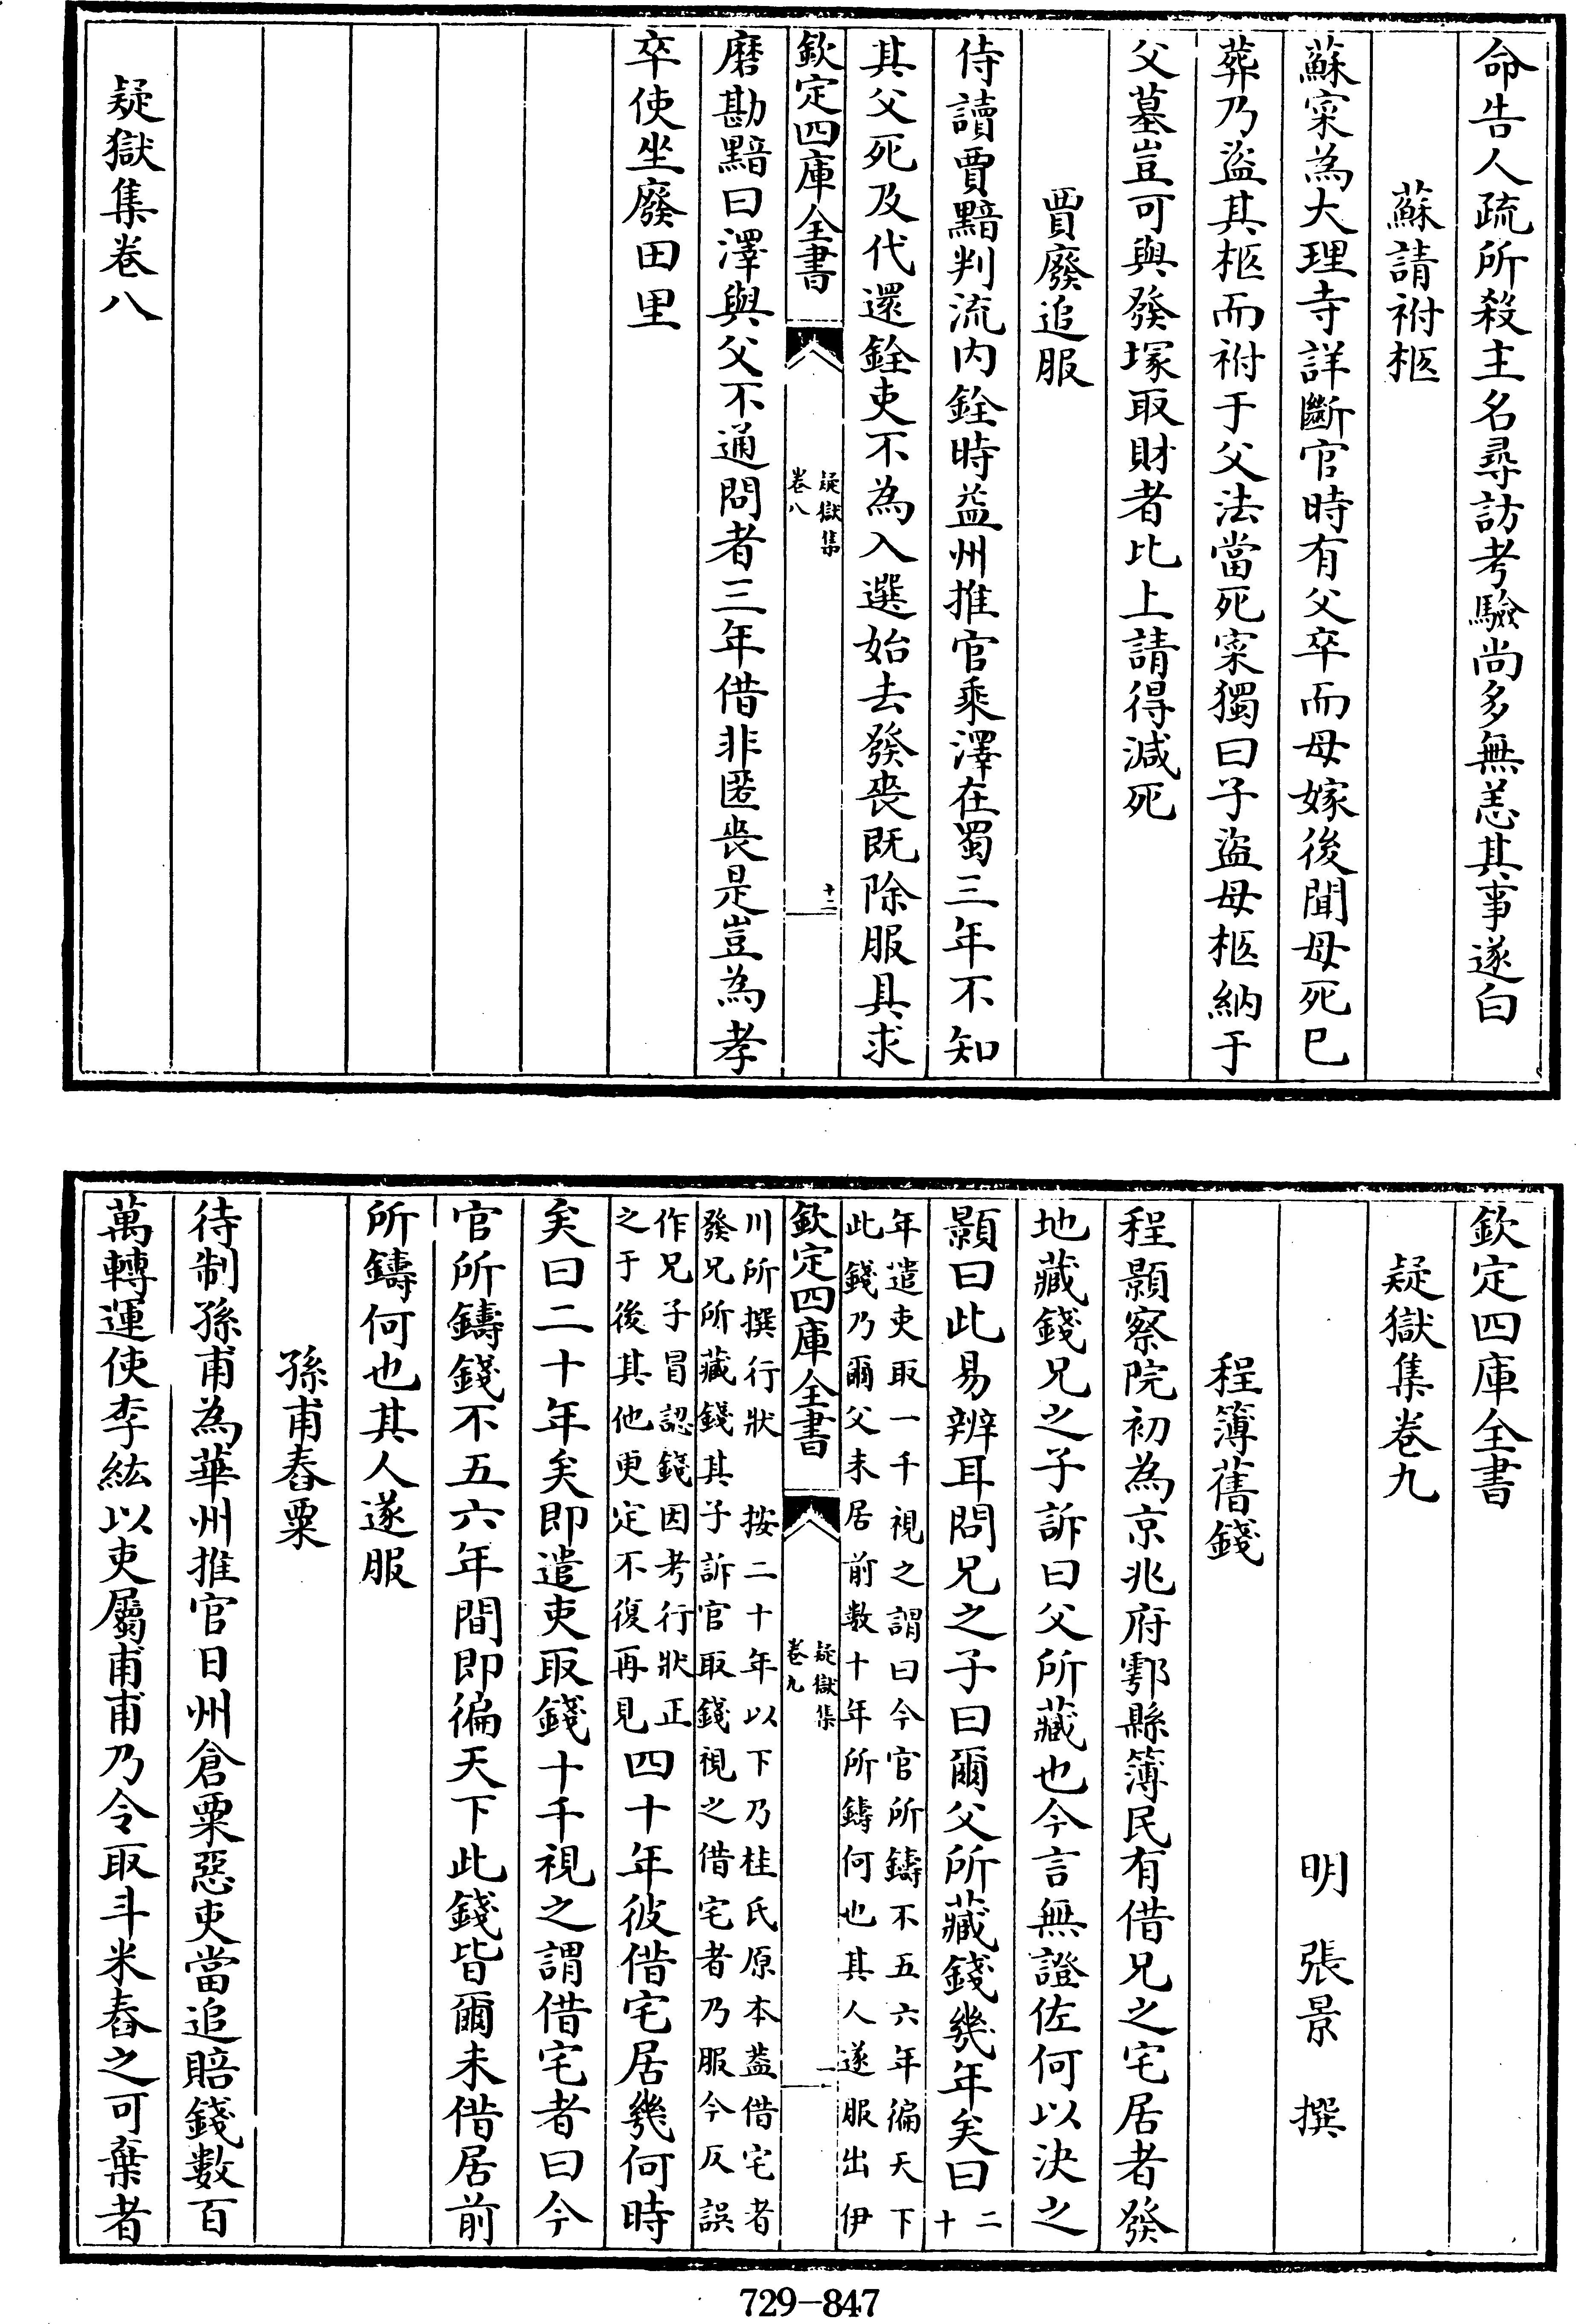 命告人疏所殺主名尋訪考驗尚多無恙其事遂白
蘇請祔柩
蘇寀為大理寺詳斷官時有父卒而母嫁後聞母死已
葬乃盜其柩而祔于父法當死寀獨曰子盜母柩納于
父墓豈可與發塚取財者比上請得減死
賈廢追服
侍讀賈黯判流内銓時益州推官乘澤在蜀三年不知
其父死及代還銓吏不為入選始去發喪既除服具求
欽定四庫全書
疑獄集
卷八
十二
磨勘黯曰澤與父不通問者三年借非匿喪是豈為孝
卒使坐廢田里
疑獄集卷八
欽定四庫全書
疑獄集卷九
明 張景 撰
程簿舊錢
程顥察院初為京兆府鄠縣簿民有借兄之宅居者發
地藏錢兄之子訴曰父所藏也今言無證佐何以決之
顥曰此易辨耳問兄之子曰爾父所藏錢幾年矣曰二
十
年遣吏取一千視之謂曰今官所鑄不五六年徧天下
此錢乃爾父未居前數十年所鑄何也其人遂服出伊
欽定四庫全書
疑獄集
卷九
一
川所撰行狀 按二十年以下乃桂氏原本蓋借宅者
發兄所藏錢其子訴官取錢視之借宅者乃服今反誤
作兄子冒認錢因考行狀正
之于後其他更定不復再見
四十年彼借宅居幾何時
矣曰二十年矣即遣吏取錢十千視之謂借宅者曰今
官所鑄錢不五六年間即徧天下此錢皆爾未借居前
所鑄何也其人遂服
孫甫舂粟
待制孫甫為華州推官日州倉粟惡吏當追賠錢數百
萬轉運使李紘以吏屬甫甫乃令取斗米舂之可棄者
729—847